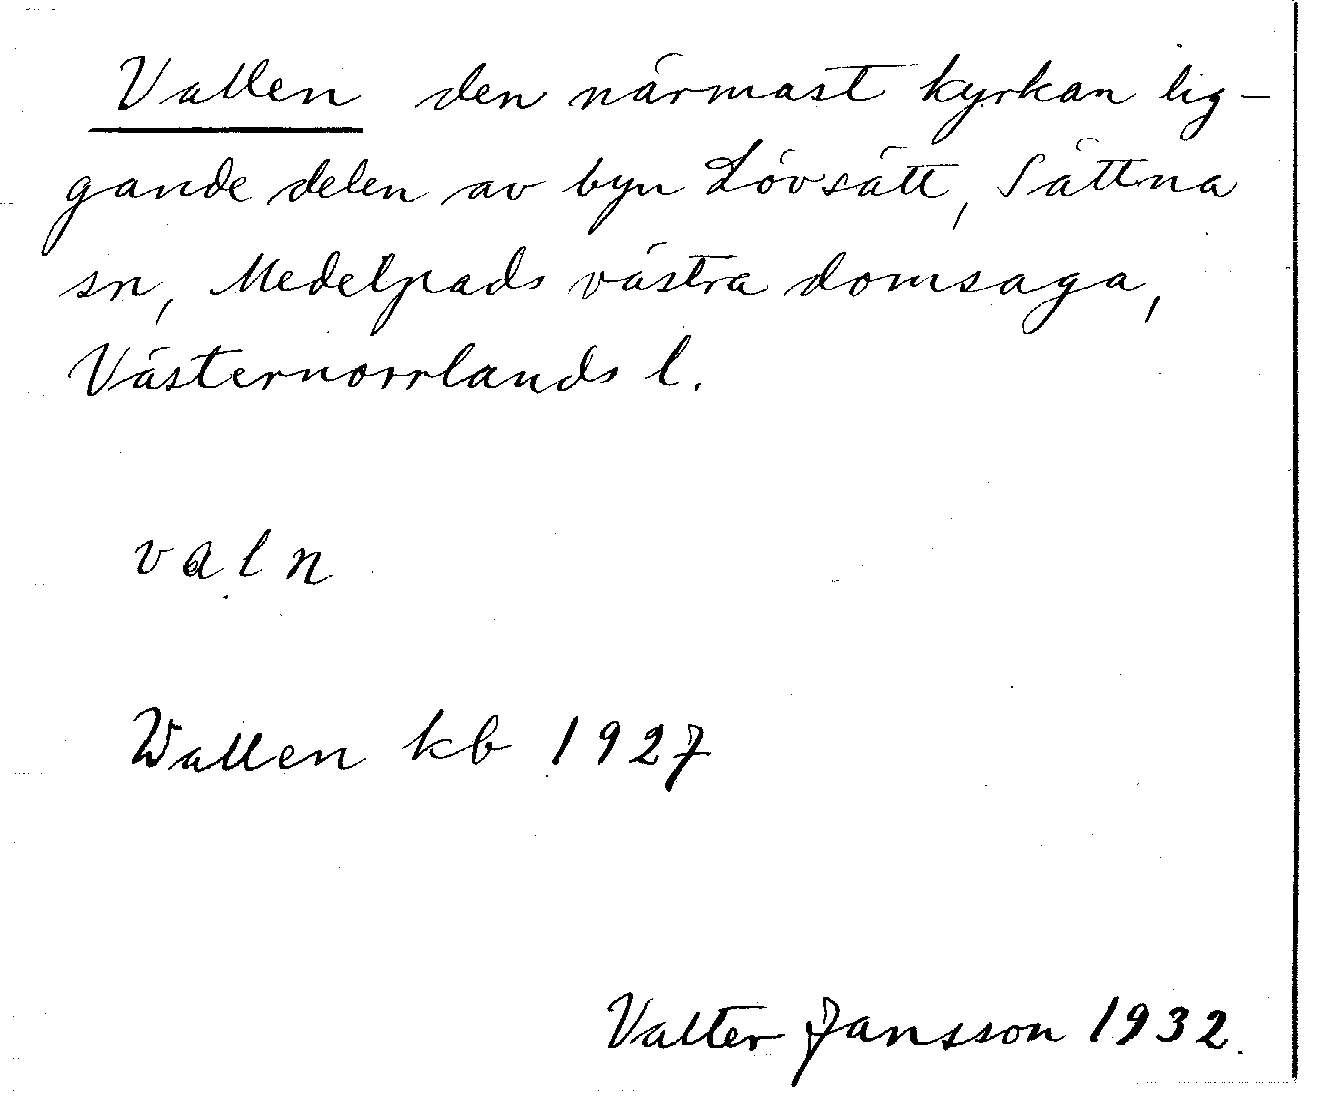 Vallen den närmast kyrkan lig-
gande delen av byn Lövsätt, Sättna
sn, Medelpads västra domsaga,
Västernorrlands l.
valn
Wallen kb 1927
Valter Jansson 1932.